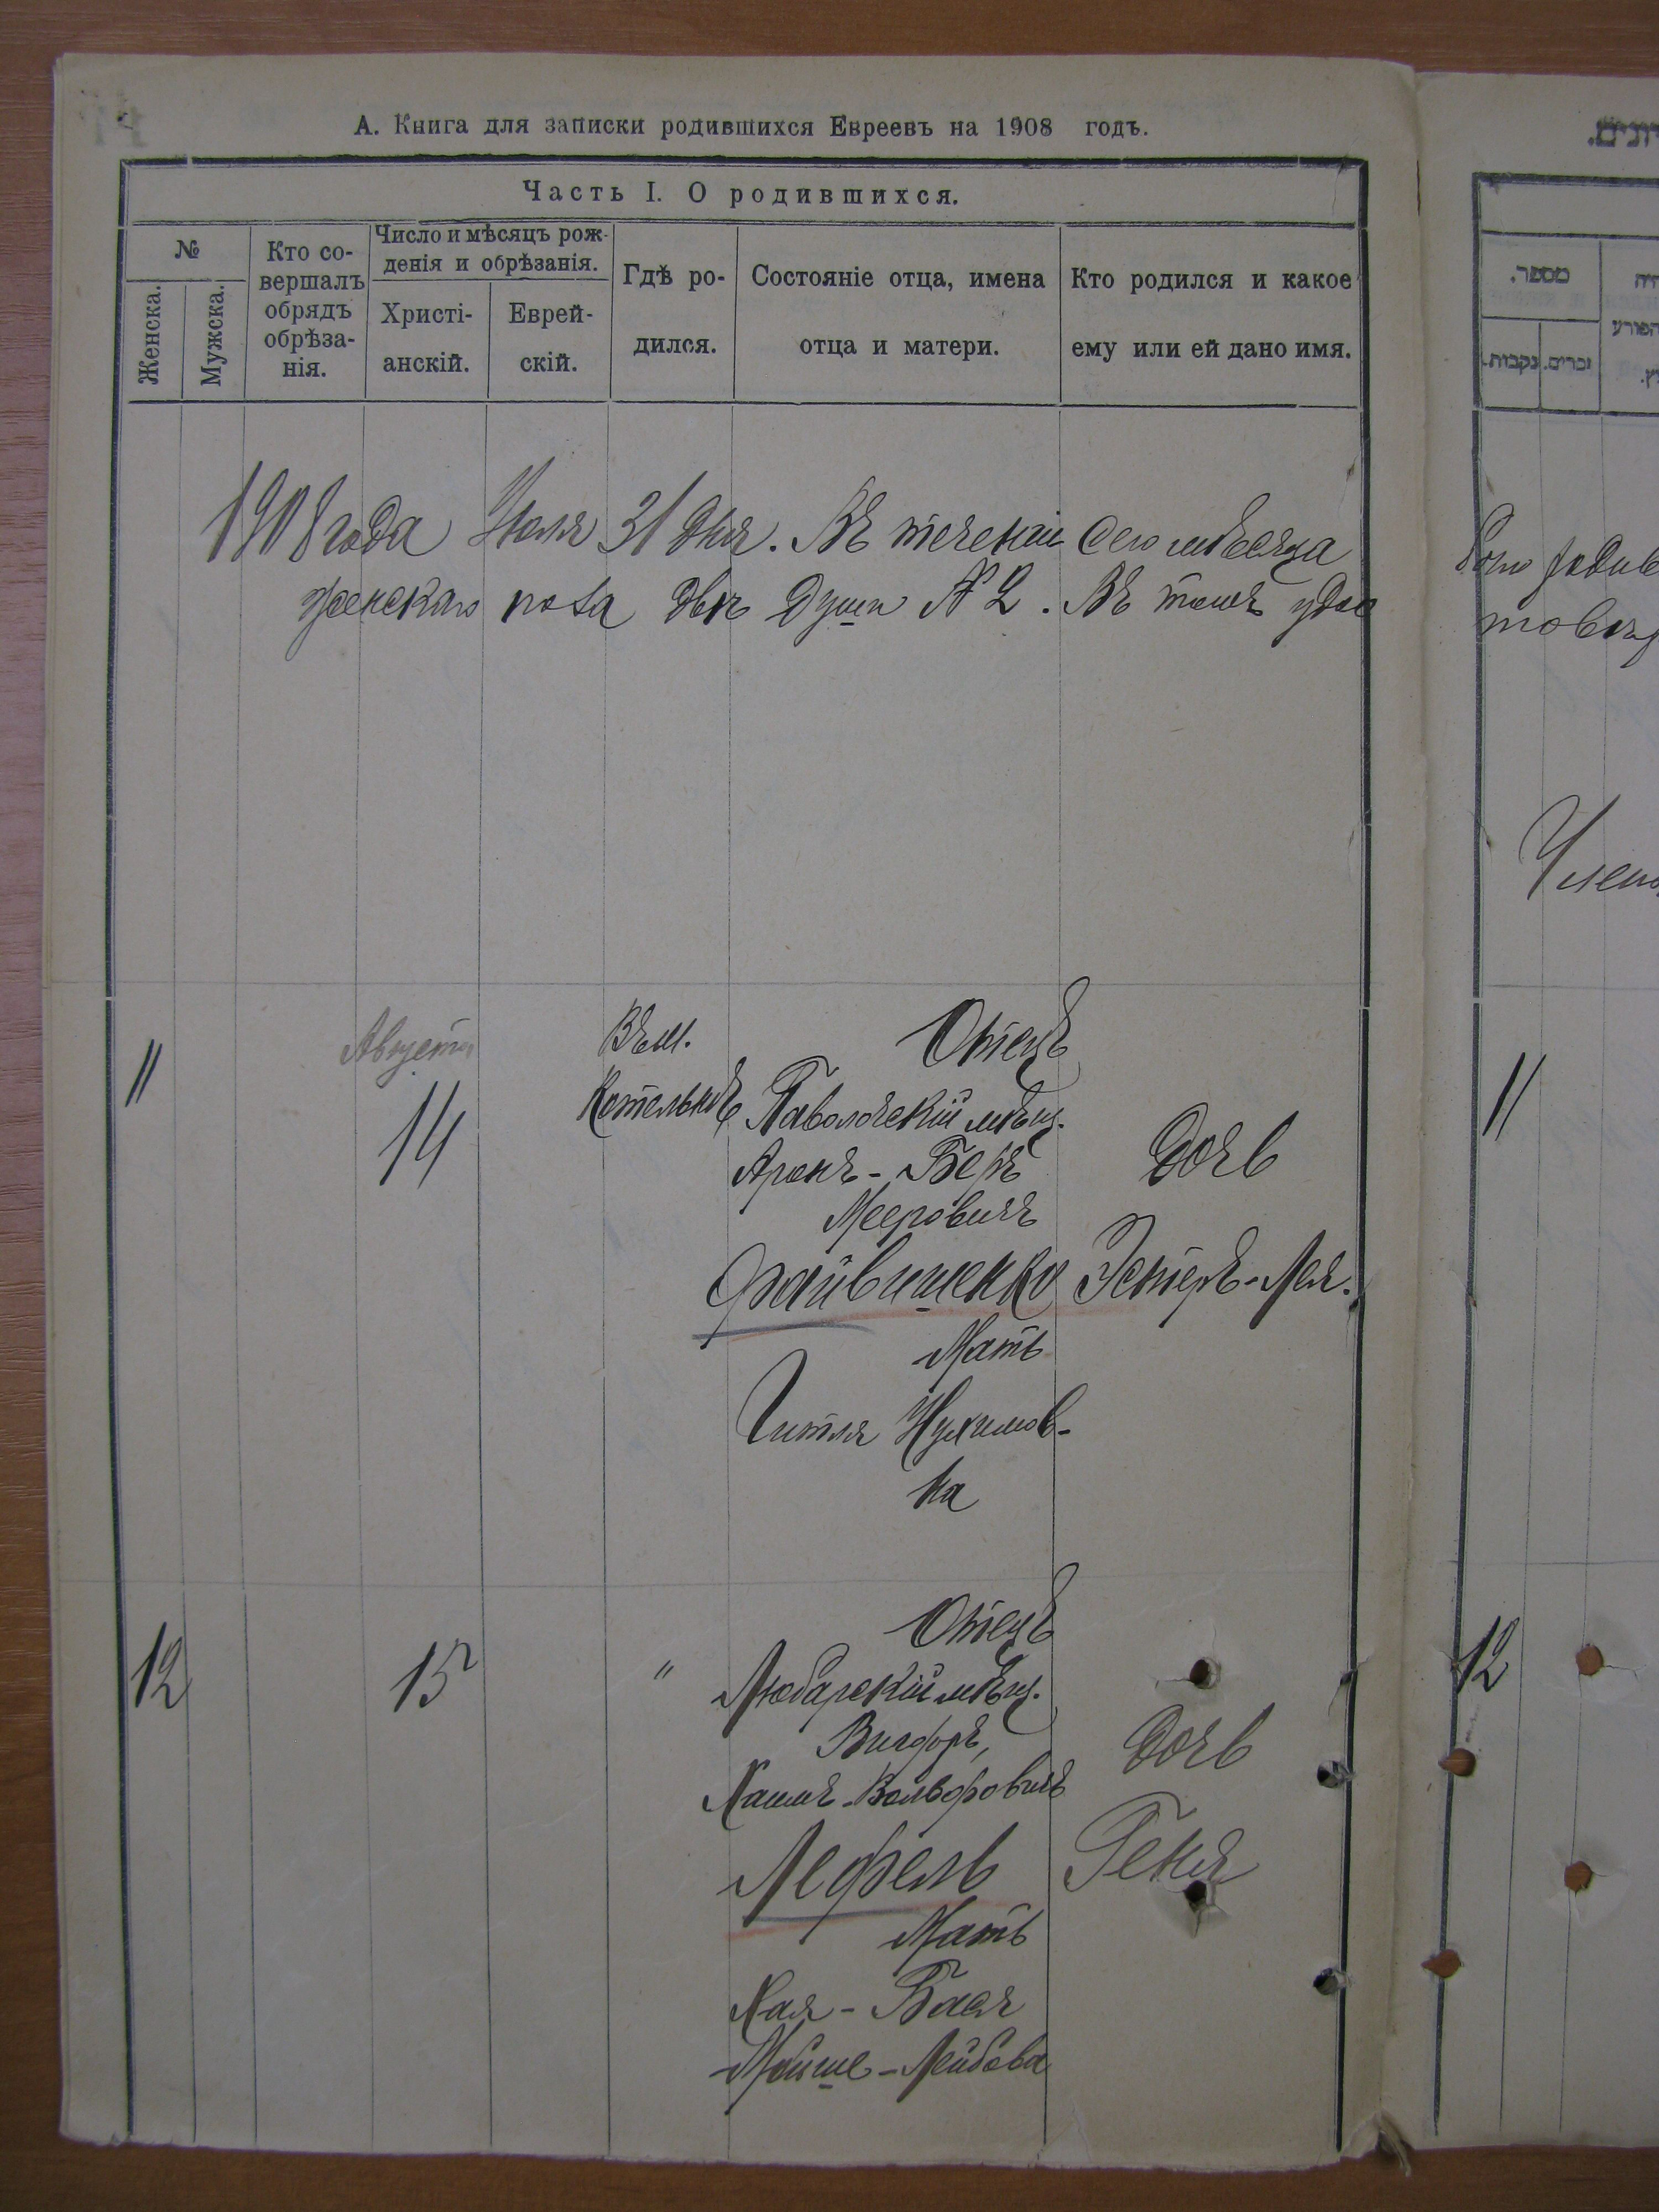 А. Книга для записки родившихся Евреевъ на 1908 годъ.
Часть I. О родившихся.
№
Женска.
Мужска.
Кто со-
вершалъ
обрядъ
обрѣза-
нія.
Число и мѣсяцъ рож-
денія и обрѣзанія.
Христі-
анскій.
Еврей-
скій.
Гдѣ ро-
дился.
Состояніе отца, имена
отца и матери.
Кто родился и какое
ему или ей дано имя.
1908 года Іюля 31 дня. Въ теченіи сего мѣсяца
женскаго пола двѣ души № 2. Въ томъ удос
11
Августа
14
Въ м.
Котельнѣ
Отецъ
Паволочскій мѣщ.
Аронъ-Беръ
Мееровичъ
Файвишенко
Мать
Гитля Нухимов-
на
Дочь
Эстеръ-Лея.
12
15
"
Отецъ
Любарскій мѣщ.
Вигдоръ,
Хаимъ-Вольфовичъ
Лефель
Мать
Хая-Бася
Мойше-Лейбова
Дочь
Геня
מספר.
זכרים.
נקבות.
товѣр
Член
11
12